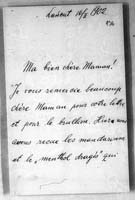 16/2 1902
Ma bien chère Maman!
Je vous remercie beaucoup
chère Maman pour votre lettre
et pour le bouillon. Hier nous
avons reçu les mandarines
et le „menthol dragés" qui